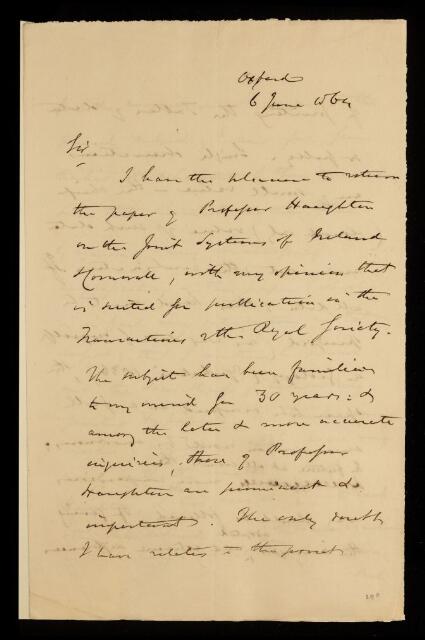 Oxford
6 June 1864
Sir
I have the pleasure to return
the paper of Professor Haughton
on the Joint Systems of Ireland
& Cornwall, with my opinion that
is suited for publication in the
Transactions of the Royal Society.
The subject has been familiar
to my mind for 30 years: &
among the later & more accurate
inquiries, those of Professor
Haughton are prominent &
important. The only doubt
I have relates to the point